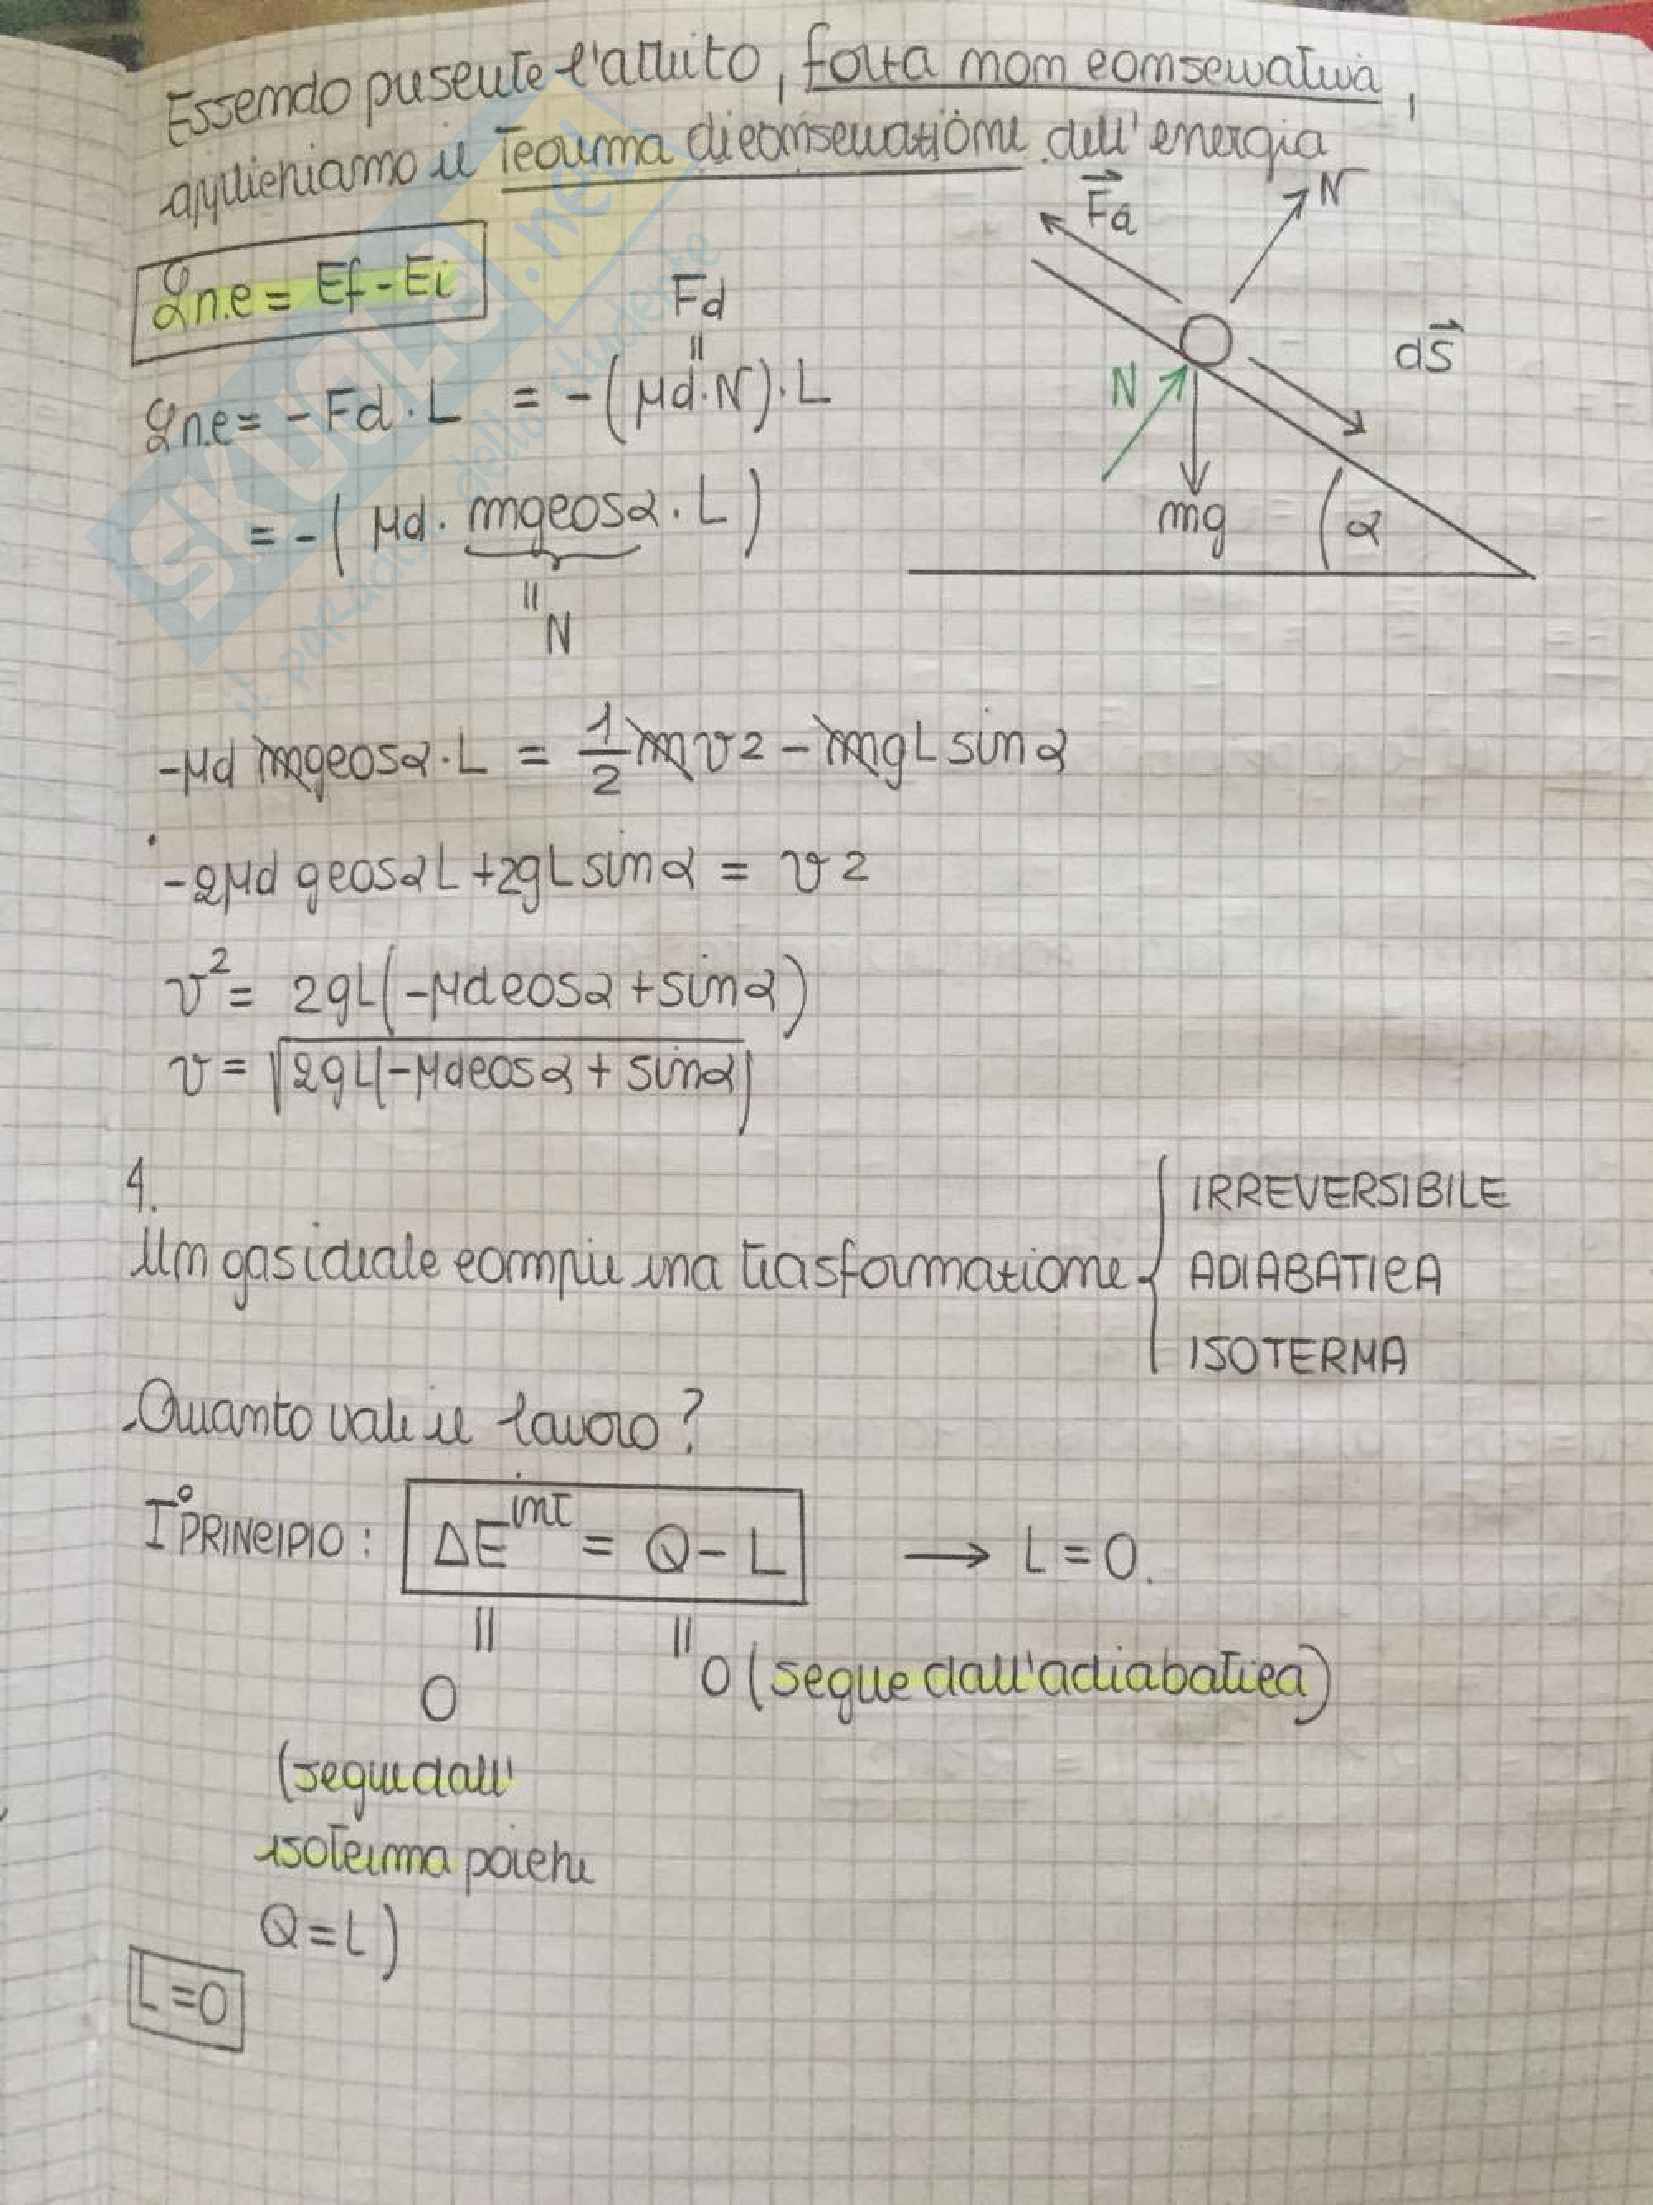 Essendo presente l'attrito, forza non conservativa,
applichiamo il Teorema di conservazione dell'energia
Ln.c = Ef - Ei
Fd
=
Ln.c = - Fd · L = - (μd · N) · L
= - ( μd · mgcosα · L )
=
N
Fa
N
ds
N
mg
α
-μd mgcosα · L = 1/2 mv2 - mgL sinα
-2μd gcosα L + 2gL sinα = v2
v² = 2gL(-μd cosα + sinα)
v = √2gL(-μd cosα + sinα)
4.
Un gas ideale compie una trasformazione { IRREVERSIBILE
ADIABATICA
ISOTERMA
Quanto vale il lavoro?
I° PRINCIPIO: ΔE^int = Q - L → L = 0.
= =
0 0 (segue dall'adiabatica)
(segue dall'
isoterma poiché
Q = L)
L = 0
SKUOLA.net
il paradiso dello studente